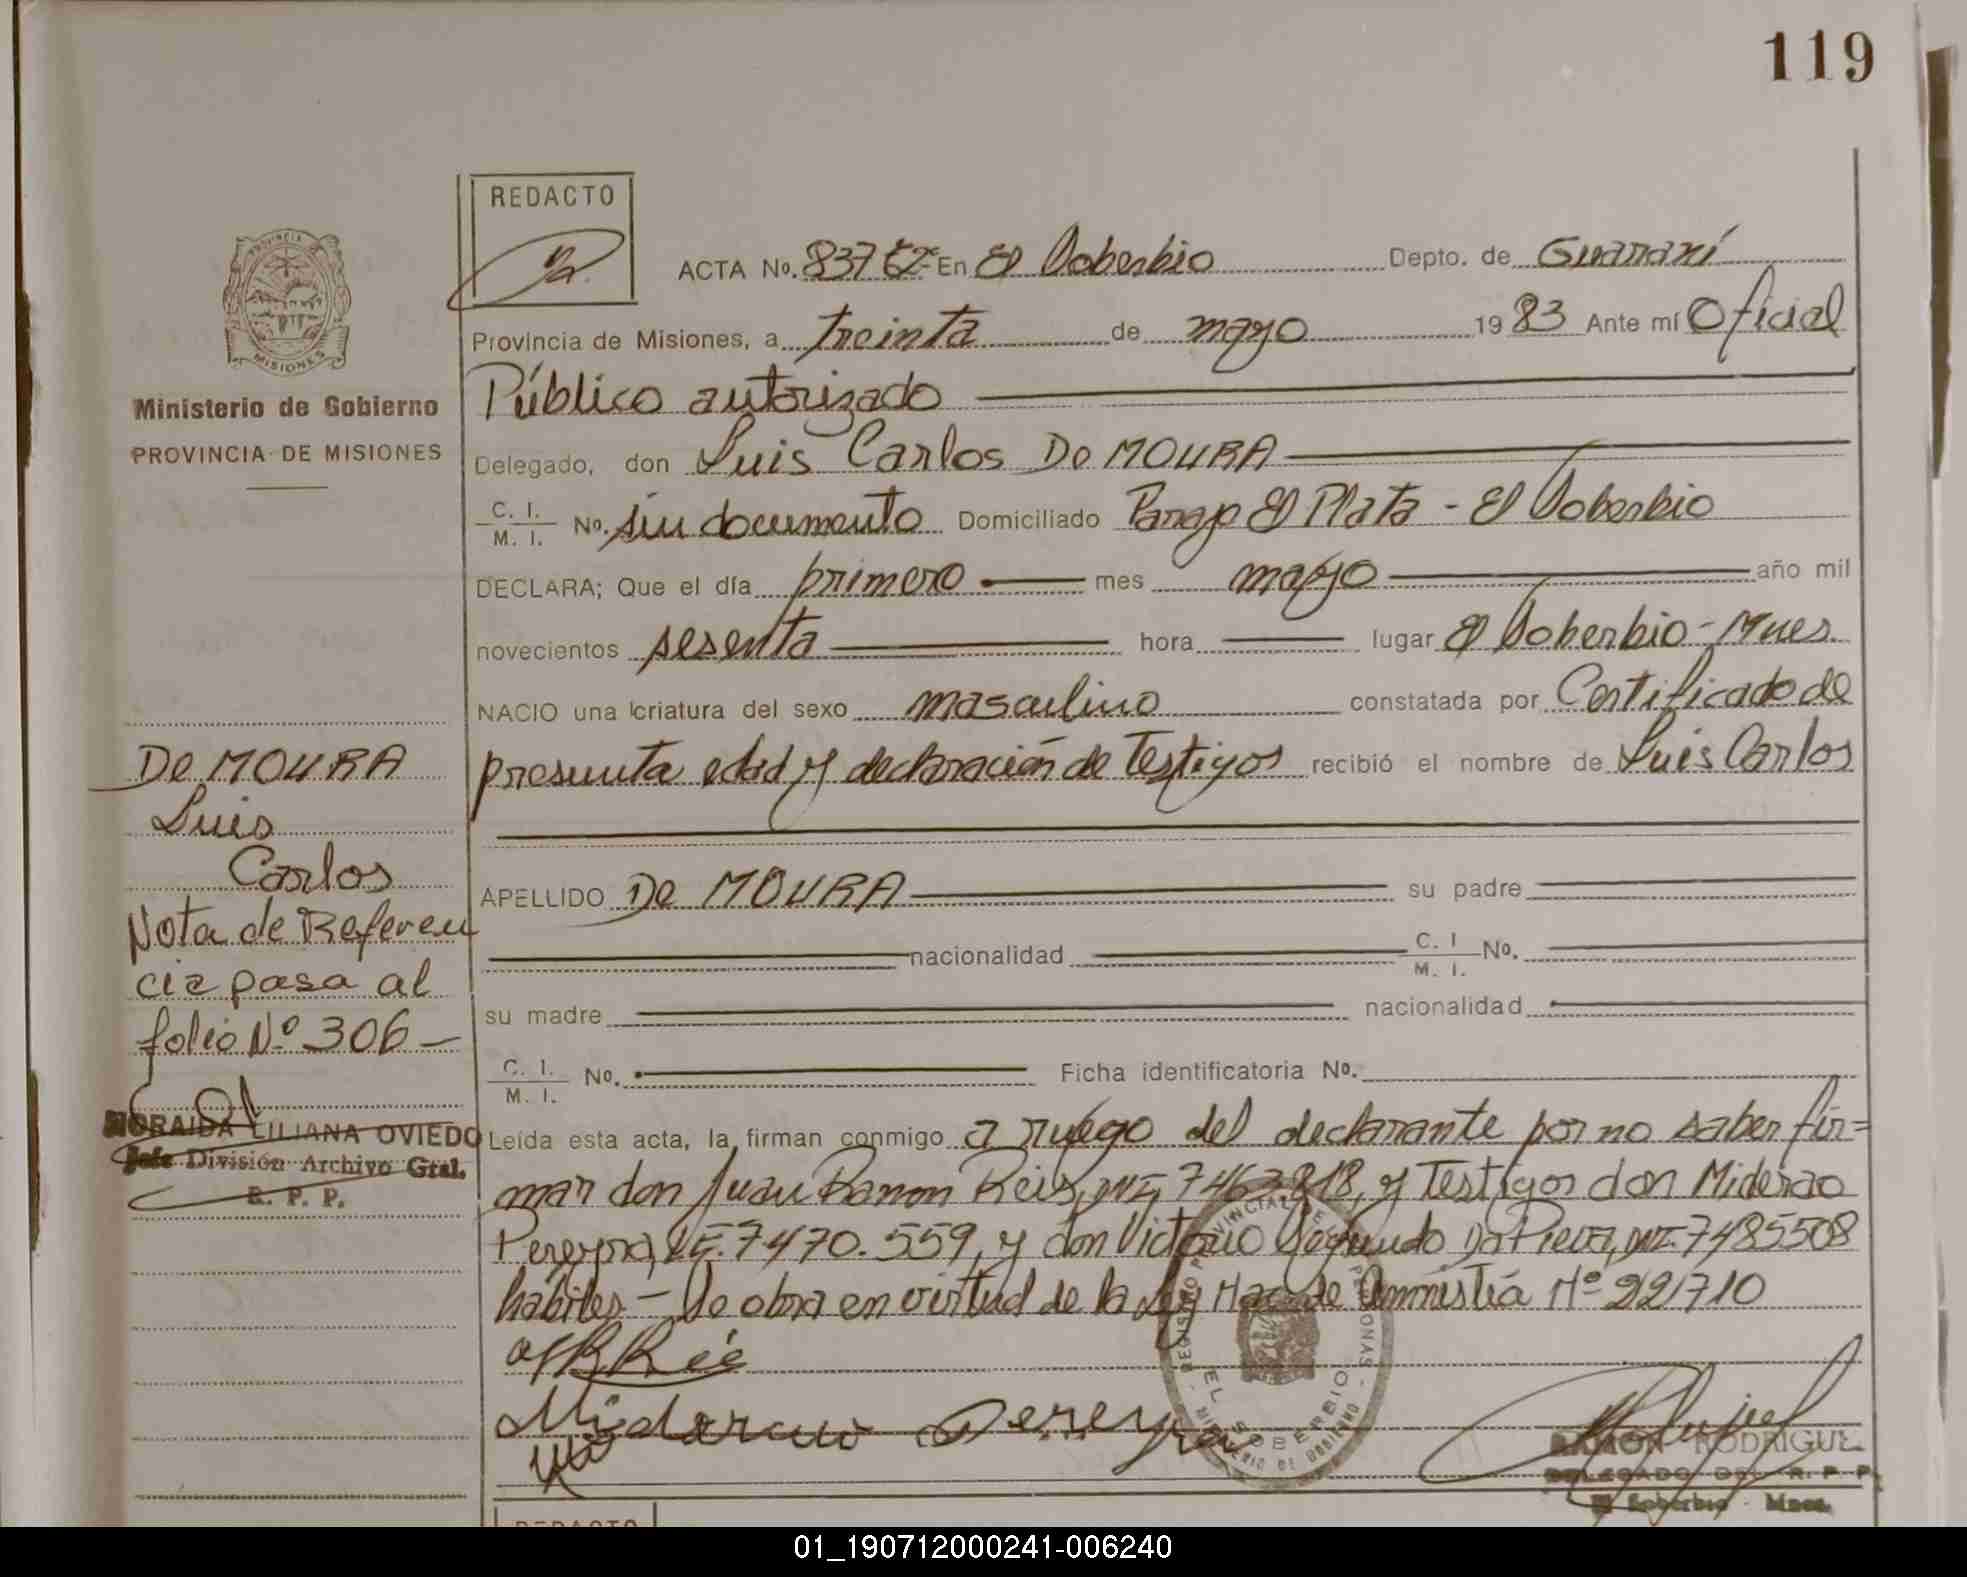 119
REDACTO
ACTA No. 837 En El Soberbio Depto. de Guaraní
Provincia de Misiones, a treinta de mayo 1983 Ante mí Oficial
Público autorizado
Delegado, don Luis Carlos De MOURA
C. I. / M. I. No. sin documento Domiciliado Paraje El Plata - El Soberbio
DECLARA; Que el día primero mes mayo año mil
novecientos sesenta hora lugar El Soberbio - Mnes.
NACIO una criatura del sexo masculino constatada por Certificado de
presunta edad y declaración de Testigos recibió el nombre de Luis Carlos
APELLIDO De MOURA su padre
nacionalidad C. I / M. I. No.
su madre nacionalidad
C. I. / M. I. No. Ficha identificatoria No.
Leída esta acta, la firman conmigo a ruego del declarante por no saber fir=
mar don Juan Ramon Reis, DNI, 7463818, y Testigos don Miderao
Pereyra, LE. 7470.559, y don Victorio Segundo Da Pieva, DNI. 7485508
hábiles - Se obra en virtud de la Ley Nac. de Amnistía Nº 221710
Miderao Pereyra
PROVINCIA
MISIONES
Ministerio de Gobierno
PROVINCIA DE MISIONES
De MOURA
Luis
Carlos
Nota de Referen
cia pasa al
folio Nº 306 -
NORAIDA LILIANA OVIEDO
Jefe División Archivo Gral.
R. P. P.
REGISTRO PROVINCIAL DE PERSONAS
EL SOBERBIO
MINISTERIO DE GOBIERNO
RAMON RODRIGUE
DELEGADO DEL R. P. P.
El Soberbio - Mnes.
REDACTO
01_190712000241-006240